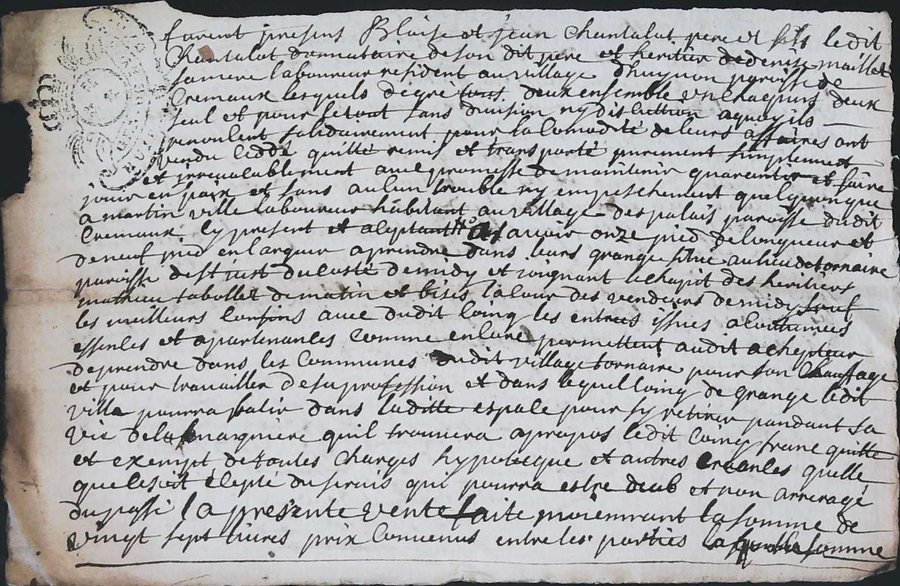 furent presens Blaise et jean Chantalot pere et fils ledit
Chantalot donnataire de son dit pere et heritier de denise maillet
sa mere laboureur resident au village dhuguon parroisse de
Cremaux lesquels de gre tous deux ensemble un chaquns deux
seul et pour le tout sans division ny discution a quoy ils
renonsent solidairement pour la comodité de leurs affaires ont
vendu ceddé quitté remis et transporté purement simplement
et irrevocablement avec promesse de maintenir guarentir et faire
jouir en paix et sans aulcun trouble ny empeschement quelqconque
a martin ville laboureur habitant au village des palais paroisse dudit
Cremaux cy present et aceptant a savoir onze pied de longueur et
de neuf pied en largeur a prendre dans leurs grange situé au lieu de tornaire
paroisse de st just du costé de midy et joignant le chapit des heritiers
mathieu tabollet de matin et bises la cour des vendeurs de midy sauf
les meilleurs confins avec du dit coing les entrees issues acoutumées
essences et apartenances comme encore permettent audit achepteur
de prendre dans les communes dudit village tornaire pour son chauffage
et pour travailler de sa profession et dans lequel coing de grange ledit
ville pourra batir dans laditte espale pour sy retirer pandant sa
vie de la maniere quil trouvera apropos ledit coing franc quitte
et exempt de toutes charges hypotecque et autres quelle
que le soit excepté du servis qui pourra estre deub et non arreragé
du passé la presente vente faite moienant la somme de
vingt sept livres prix convenus entre les parties laquelle somme